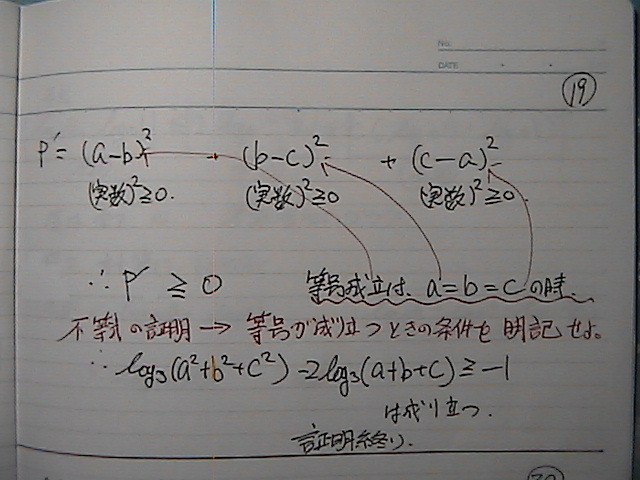 No.
DATE
19
P' = (a-b)² + (b-c)² + (c-a)²
(実数)²≧0. (実数)²≧0 (実数)²≧0.
∴ P' ≧ 0 等号成立は、a=b=cの時.
不等式の証明 → 等号が成り立つときの条件を明記せよ。
∴ log₃(a²+b²+c²) -2log₃(a+b+c) ≧ -1
は成り立つ.
証明終り.